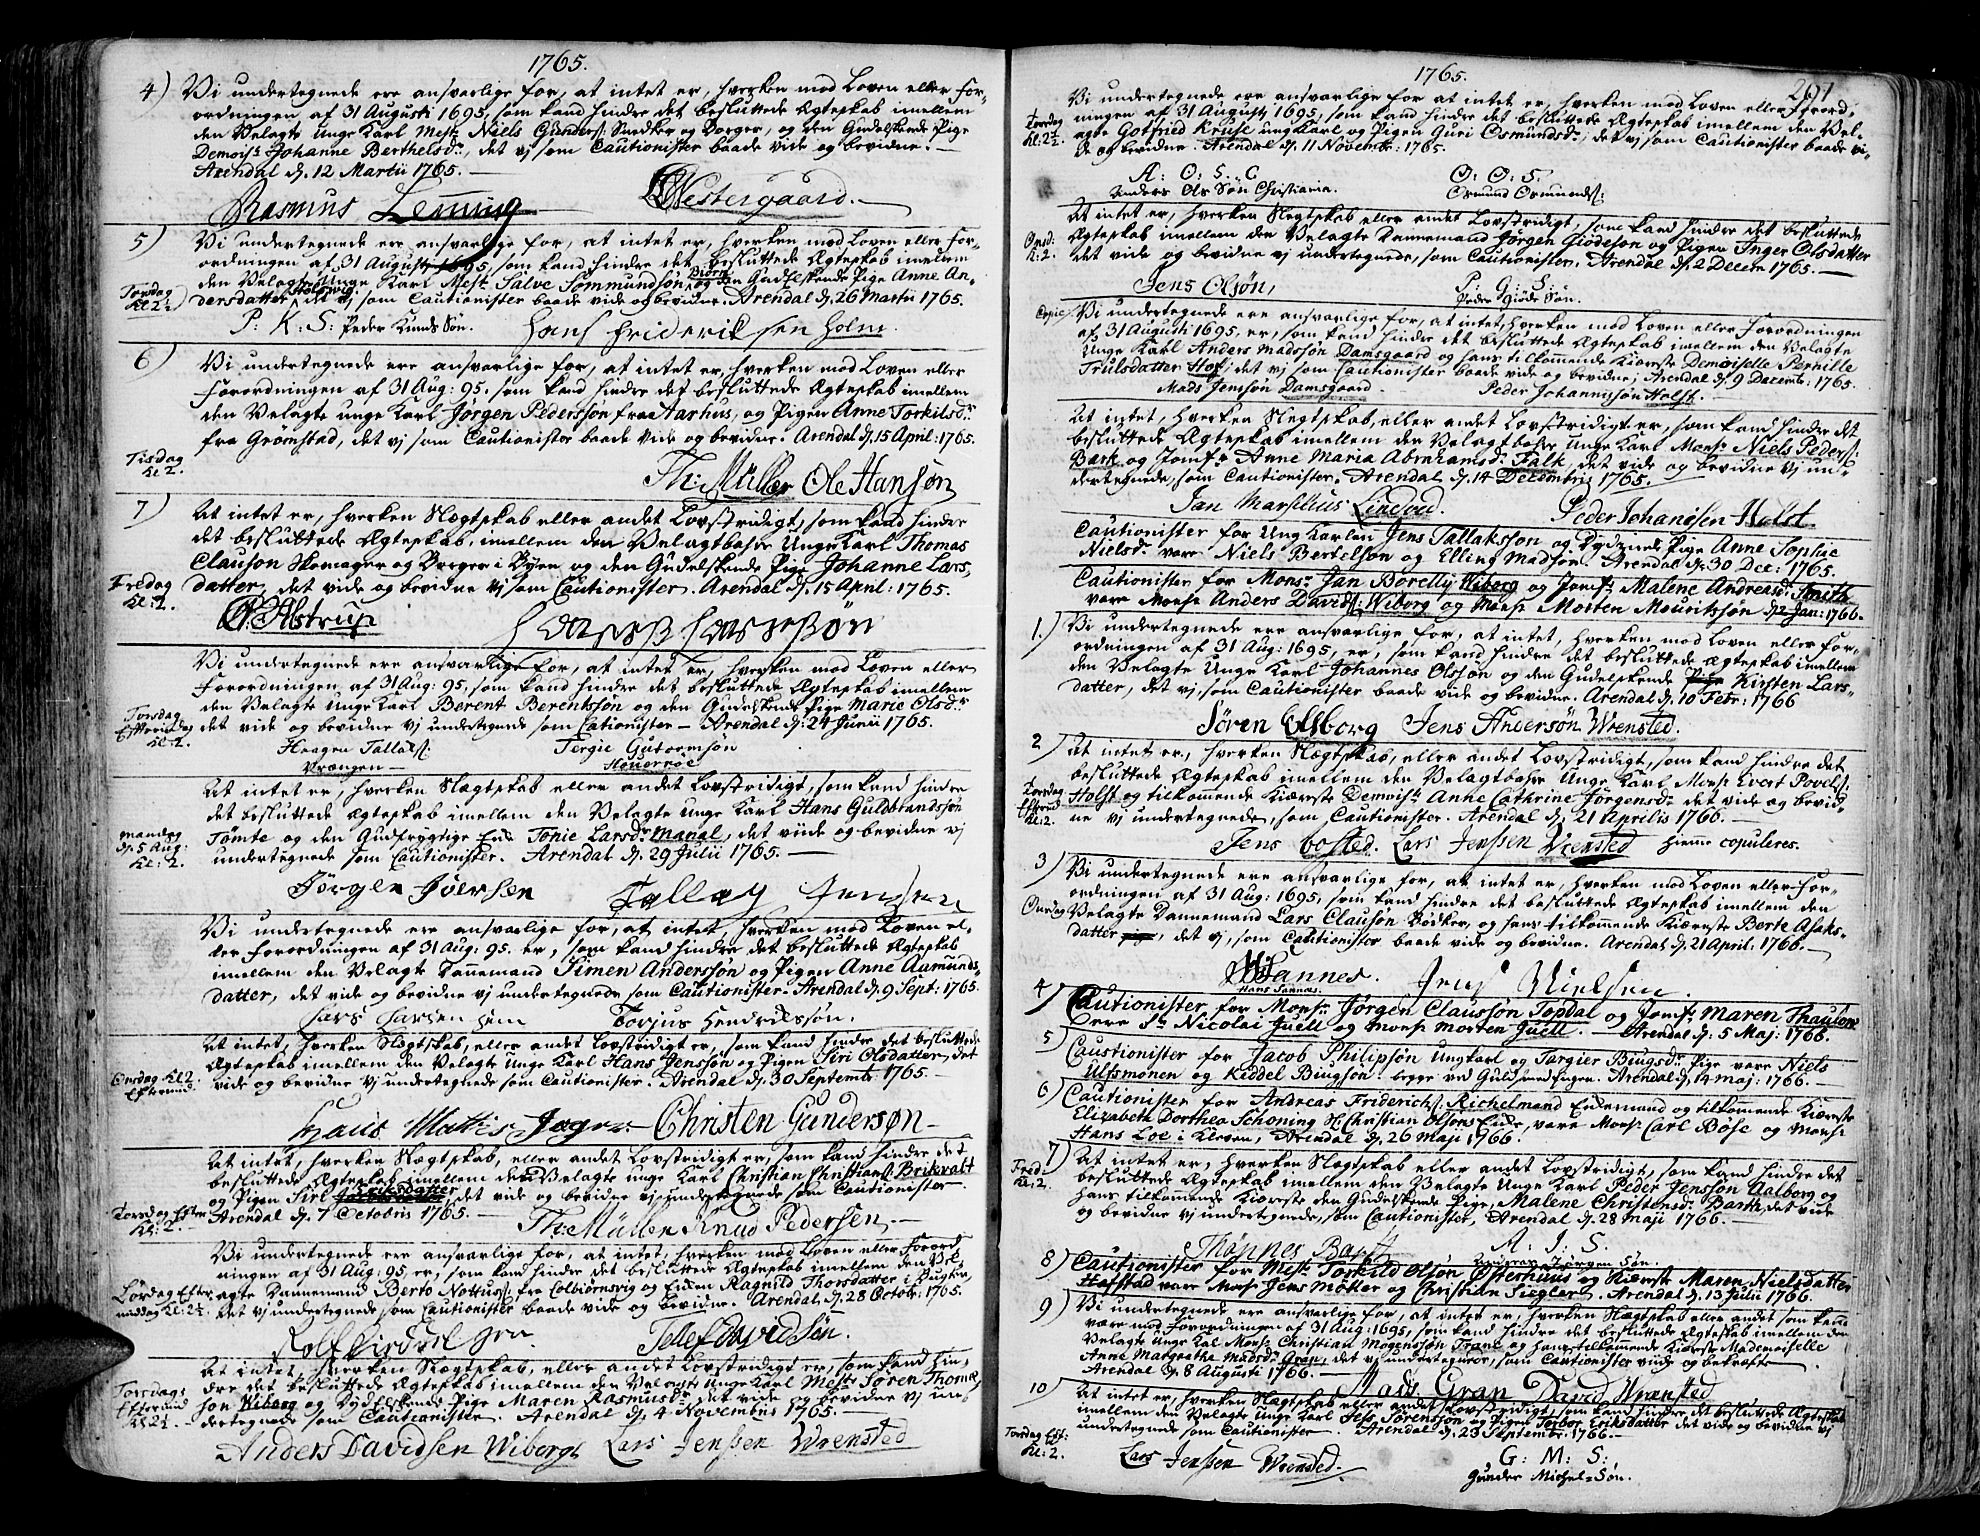 1765.
4) Vi undertegnede ere ansvarlige for, at intet er, hverken mod Loven eller For-
ordningen af 31 Augusti 1695, som kand hindre det besluttede Ægteskab imellem
den Velagte Unge Karl Mestr Niels Gunders: Snedker og Borger, og den Gudelskende Pige
Demois: Johanne Berthelsdr, det vj som Cautionister baade vide og bevidne.
Arendal d. 12 Martii 1765.
Rasmus Lemmig Westergaard.
5) Vi undertegnede ere ansvarlige for, at intet er, hverken mod Loven eller For-
ordningen af 31 Augusti 1695, som kand hindre det besluttede Ægteskab imellem
den Velagte Unge Karl Mestr Salve Tommundsøn Biørn og den Gudelskende Pige Anne An-
Torsdag Kl 2½ dersdatter, det vj som Cautionister baade vide og bevidne. Arendal d. 26 Martii 1765.
P: K: S: Peder Knuds Søn. Hans Friderik sen Holm.
6) Vi undertegnede ere ansvarlige for, at intet er, hverken mod Loven eller
Forordningen af 31 Aug: 95, som kand hindre det besluttede Ægteskab imellem
den Velagte unge Karl Jørgen Pederssøn fra Aarhus, og Pigen Anne Torkilsdr
fra Grømstad, det vj som Cautionister baade vide og bevidne. Arendal d. 15 April: 1765.
Tisdag Kl 2.
Th: Müller Ole Hansøn
7) At intet er, hverken Slægtskab eller andet Lovstridigt, som kand hindre
det besluttede Ægteskab, imellem den Velagtbahre Unge Karl Thomas
Clauson Skomager og Borger i Byen og den Gudelskende Pige Johanne Lars,
Fredag Kl: 2. datter, det vide og bevidne vj som Cautionister. Arendal d. 15 April: 1765.
Alstrup
Vi undertegnede ere ansvarlige for, at intet er, hverken mod Loven eller
Forordningen af 31 Aug: 95, som kand hindre det besluttede Ægteskab imellem
den Velagte Unge Karl Berent Berentssøn og den Gudelskende Pige Marie Olsdr
Torsdag Eftermidag Kl: 2. det vide og bevidne vj undertegnede som Cationister – Arendal d. 24 Junii 1765.
Haagen Tallaks: Tergie Gutormsøn
Vrængen –
At intet er, hverken Slegtskab eller andet Lovstridigt, som kand hindre
det besluttede Ægteskab imellem den Velagte unge Karl Hans Guldbrandssøn
Tømte og den Gudfrygtige Enke Tonie Larsdr Marial, det viide og bevidne vj
mandag d. 5 Aug: Kl: 2. undertegnede som Cautionister. Arendal d. 29 Julii 1765.
Jørgen Joersen Jensen
Vi undertegnede ere ansvarlige for, at intet, hverken mod Loven el-
ler Forordningen af 31 Aug: 95. er, som kand hindre det besluttede Ægteskab
imellem den Velagte Dannemand Simen Anderssøn og Pigen Anne Aamunds-
datter, det vide og bevidne vj undertegnede som Cautionister. Arendal d. 9 Sept: 1765.
Lars Larsen Torjus Hendrikssøn.
At intet, hverken Slegtskab, eller andet Lovstridigt er, som kand hindre det besluttede
Ægteskab imellem den Velagte Unge Karl Hans Jenssøn og Pigen Siri Olsdatter, det
Onsdag Kl 2. Eftermid. vide og bevidne vj undertegnede som Cautionister. Arendal d. 30 Septembr 1765.
Hans Mathis Christen Gundersøn –
At intet, hverken Slegtskab, eller andet Lovstridigt er, som kand hindre det
besluttede Ægteskab imellem den Velagte unge Karl Christian Christians: Brikvalt
og Pigen Siri Eriksdatter det vide og bevidne vj undertegnede som Cautionister
Torsdag Efter Kl: 2. Arendal d. 7 Octobris 1765. Th: Müller Knud Pedersen
Vi undertegnede ere ansvarlige for, at intet, hverken mod Loven eller Forord
ningen af 31 Aug: 95 er, som kand hindre det besluttede Ægteskab imellem den Vel-
Lørdag Efter middag Kl: 2½ agte Dannemand Berto Nottus: fra Colbiørnsvig og Enken Ragnild Thorsdatter i
det vj undertegnede som Cautionister baade vide og bevidne. Arendal d. 28 Octobr: 1765.
Tellef Davidsøn.
At intet, hverken Slegtskab, eller andet Lovstridigt er, som kand hin-
dre det besluttede Ægteskab imellem den Velagte Unge Karl Mestr Søren Thomæ
Torsdags Eftermid Kl 2½ søn Wiborg og Dydelskende Pige Maren Rasmusdr det vide og bevidne vj un-
dertegnede som Cautionister. Arendal d. 4 Novembris 1765.
Anders Davidsen Wiborg Lars Jenssen Wrensted
1765. 201
Vi undertegnede ere ansvarlige for at intet er, hverken mod Loven eller Forord
ningen af 31 Augusti 1695, som kand hindre det besluttede Ægteskab imellem den Vel-
Torsdag Kl: 2½ agte Gotfried Kruse ung Karl og Pigen Guri Osmundsdr; det vj som Cautionister baade vi-
de og bevidne. Arendal d. 11 Novembr: 1765.
A: O: S: C O: O: S:
Anders Ols Søn Christiania. Osmund Osmunds:
At intet er, hverken Slegtskab eller andet Lovstridigt, som kand hindre det besluttede
Onsd: Kl: 2. Ægteskab imellem den Velagte Dannemand Jørgen Giødesøn og Pigen Inger Olsdatter
det vide og bevidne vj undertegnede, som Cautionister. Arendal d. 2 Decem 1765.
Jens Olsøn, P: G: S:
Peder Giøde Søn.
Copie Vi undertegnede ere ansvarlige for, at intet, hverken mod Loven eller Forordningen
af 31 Augusti 1695. er, som kand hindre det besluttede Ægteskab imellem den Velagte
Unge Karl Anders Madssøn Damsgaard og hans tilkommende Kiæreste Demoiselle Pernille
Trulsdatter Hof; det vj som Cautionister baade vide og bevidne; Arendal d. 9 Decembr: 1765.
Mads Jenssøn Damsgaard Peder Johannissøn Holst.
At intet, hverken Slegtskab, eller andet Lovstridigt er, som kand hindre det
besluttede Ægteskab imellem den Velagtbahre Unge Karl Monsr Niels Peders:
Bark og Jomfr Anne Maria Abrahamsdr Falk, det vide og bevidne vj un-
dertegnede, som Cautionister. Arendal d. 14 Decembris 1765.
Jan Marselius Lindved. Peder Johanissen Holst
Cautionister for Ung Karlen Jens Tallakssøn og Dydziirede Pige Anne Sophie
Nielsdr vare Niels Bertelsøn og Elling Madsøn. Arendal d. 30 Dec: 1765.
Cautionister for Monsr Jan Borelly Wiborg og Jomfr Malene Andreasdr Smith
vare Monsr Anders Davids: Wiborg og Monsr Morten Mouritssøn d. 2 Jan: 1766.
1.) Vi undertegnede ere ansvarlige for, at intet, hverken mod Loven eller For-
ordningen af 31 Aug: 1695, er, som kand hindre det besluttede Ægteskab imellem
den Velagte Unge Karl Johannes Olssøn og den Gudelskende Pige Kirsten Lars-
datter, det vj som Cautionister baade vide og bevidne. Arendal d. 10 Febr: 1766
Søren Elsborg Jens Andersøn Wrensted.
2) At intet er, hverken Slegtskab, eller andet Lovstridigt, som kand hindre det
besluttede Ægteskab imellem den Velagtbahre Unge Karl Monsr Evert Povels:
Torsdag Eftermid Kl: 2. Holst og tilkommende Kiæreste Demoisle Anne Cathrine Jørgensdr det vide og bevid-
ne vj undertegnede, som Cautionister. Arendal d. 21 Aprilis 1766.
Jens Lars Jenssen Wrensted hjemme copuleres.
3) Vi undertegnede ere ansvarlige for, at intet er, hverken mod Loven eller For-
ordningen af 31 Aug: 1695, som kand hindre det besluttede Ægteskab imellem den
Onsdag Velagte Dannemand Lars Clauson Bødker, og hans tilkommende Kiæreste Berte Asaks-
datter, det vj, som Cautionister baade vide og bevidne. Arendal d. 21 April. 1766.
Sannes. Jens Nielsen.
Hans Sannes
4) Cautionister for Monsr Jørgen Claussøn Topdal og Jomfr Maren Thaulow
Ere Sr Nicolai Juell og Monsr Morten Juell. Arendal d. 5 Maj: 1766.
5) Caustionister for Jacob Philipsøn Ungkarl og Targier Biugsdr Pige vare Niels
Ulfsmønen og Keddel Biugsøn. begge ved Guldsmedjgen. Arendal d. 14 maj: 1766.
6) Cautionister for Andreas Friderichs: Richelmand Enkemand og tilkommende Kiæreste
Elizabeth Dorthea Schøning H Christian Olsøns Enke, vare Monsr Carl Bose og Monsr
Hans Loe i Kleven, Arendal d. 26 Maji 1766.
7) At intet er, hverken Slegtskab eller andet Lovstridigt, som kand hindre det
Fred: Kl: 2. besluttede Ægteskab imellem den Velagte Unge Karl Peder Jenssøn Aalborg og
hans tilkommende Kiæreste den Gudelskende Pige, Malene Christensdr Barth, det vide
og bevidne vj undertegnede, som Cautionister, Arendal d. 28 Maji 1766.
Thønnes Barth A: I: S.
8) Cautionister for Mestr Torkild Olsøn Osterhuus og Kiæreste Maren Nielsdatter
Hafstad vare Monsr Jens Møller og Christian Siegler. Arendal d. 13 Julii 1766.
9) Vi undertegnede ere ansvarlige for, at intet er, hverken Slegtskab eller andet som kand
være mod Forordningen af 31 Aug: 1695, som kand hindre det besluttede Ægteskab imellem den
Velagte Unge Karl Monsr Christian Mogenssøn Trane og hans tilkommende Kiæreste Mademoiselle
Anne Margrethe Madsdr Gran, det vj undertegnede, som Cautionister vide og bekræfte
Arendal d. 8 Augusti 1766. Mads Gran David Wrensted
10) At intet er, hverken Slegtskab eller andet Lovstridigt, som kand hindre det besluttede Ægteskab
imellem den Velagte Unge Karl Jens Sørenssøn og Pigen Torbor Eriksdatter det vide og bevidne vj
Torsdag Eft: Kl: 2. undertegnede som Cautionister. Arendal d. 23 Septembr 1766.
Lars Jenssen Wrensted. G: M: S:
Gunder Michel-Søn.